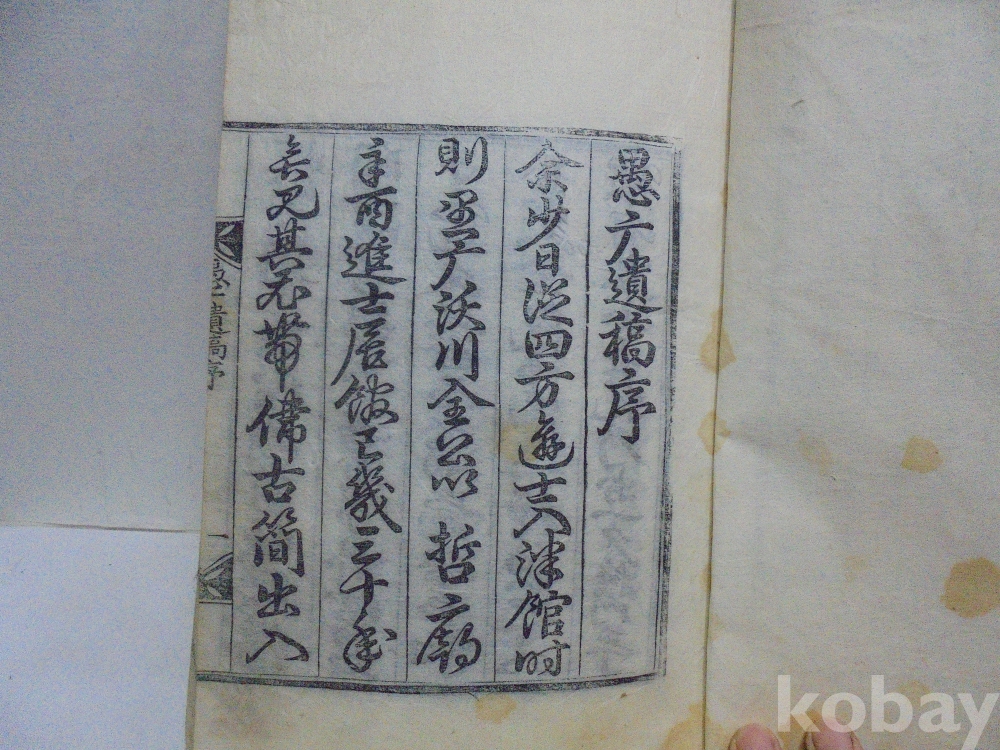 愚广遺稿序
余少日從四方遊士入泮館时
則愚广沃川全公以 哲廟
辛酉進士居館已幾三十年
矣見其衣帶佛古簡出入
愚广遺稿序
一
kobay